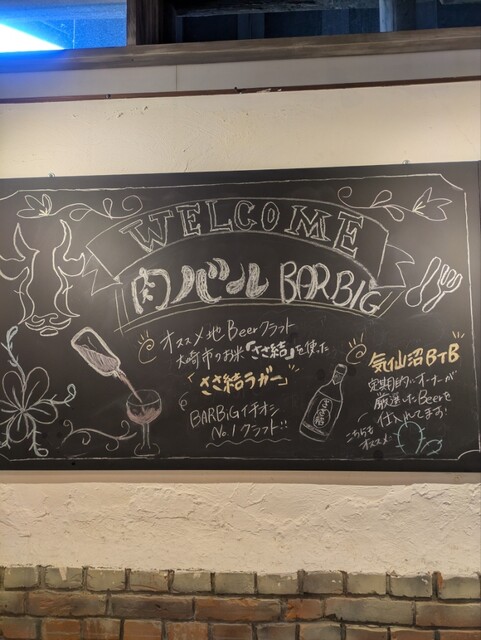 WELCOME
肉バル BARBIG
オススメ地Beerクラフト
大崎市のお米「ささ結」を使った
"ささ結ラガー"
BARBiGイチオシ
No.1クラフト!!
ささ結
気仙沼BTB
定期的にオーナーが
厳選したBeerを
仕入れてます!
こちらも
オススメ